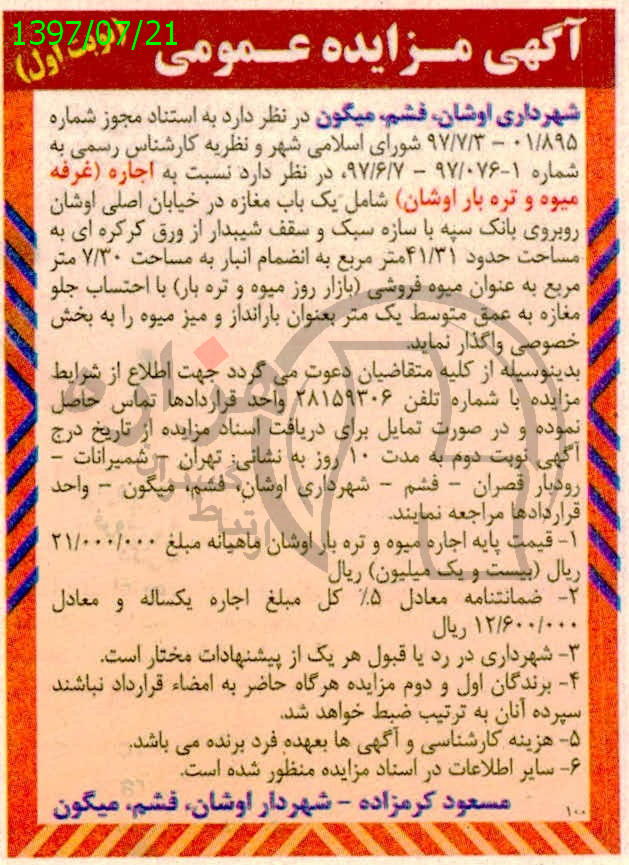 1397/07/21
آگهی مزایده عمومی (نوبت اول)
شهرداری اوشان، فشم، میگون در نظر دارد به استناد مجوز شماره
۰۱/۸۹۵ – ۹۷/۷/۳ شورای اسلامی شهر و نظریه کارشناس رسمی به
شماره ۱-۹۷/۰۷۶ – ۹۷/۶/۷، در نظر دارد نسبت به اجاره (غرفه
میوه و تره بار اوشان) شامل یک باب مغازه در خیابان اصلی اوشان
روبروی بانک سپه با سازه سبک و سقف شیبدار از ورق کرکره ای به
مساحت حدود ۴۱/۳۱متر مربع به انضمام انبار به مساحت ۷/۳۰ متر
مربع به عنوان میوه فروشی (بازار روز میوه و تره بار) با احتساب جلو
مغازه به عمق متوسط یک متر بعنوان بارانداز و میز میوه را به بخش
خصوصی واگذار نماید.
بدینوسیله از کلیه متقاضیان دعوت می گردد جهت اطلاع از شرایط
مزایده با شماره تلفن ۲۸۱۵۹۳۰۶ واحد قراردادها تماس حاصل
نموده و در صورت تمایل برای دریافت اسناد مزایده از تاریخ درج
آگهی نوبت دوم به مدت ۱۰ روز به نشانی: تهران – شمیرانات –
رودبار قصران – فشم – شهرداری اوشان، فشم، میگون – واحد
قراردادها مراجعه نمایند.
۱- قیمت پایه اجاره میوه و تره بار اوشان ماهیانه مبلغ ۲۱/۰۰۰/۰۰۰
ریال (بیست و یک میلیون) ریال
۲- ضمانتنامه معادل ۵٪ کل مبلغ اجاره یکساله و معادل
۱۲/۶۰۰/۰۰۰ ریال
۳- شهرداری در رد یا قبول هر یک از پیشنهادات مختار است.
۴- برندگان اول و دوم مزایده هرگاه حاضر به امضاء قرارداد نباشند
سپرده آنان به ترتیب ضبط خواهد شد.
۵- هزینه کارشناسی و آگهی ها بعهده فرد برنده می باشد.
۶- سایر اطلاعات در اسناد مزایده منظور شده است.
مسعود کرمزاده – شهردار اوشان، فشم، میگون
۱۰۰
هزاره
گستران
ارتباط